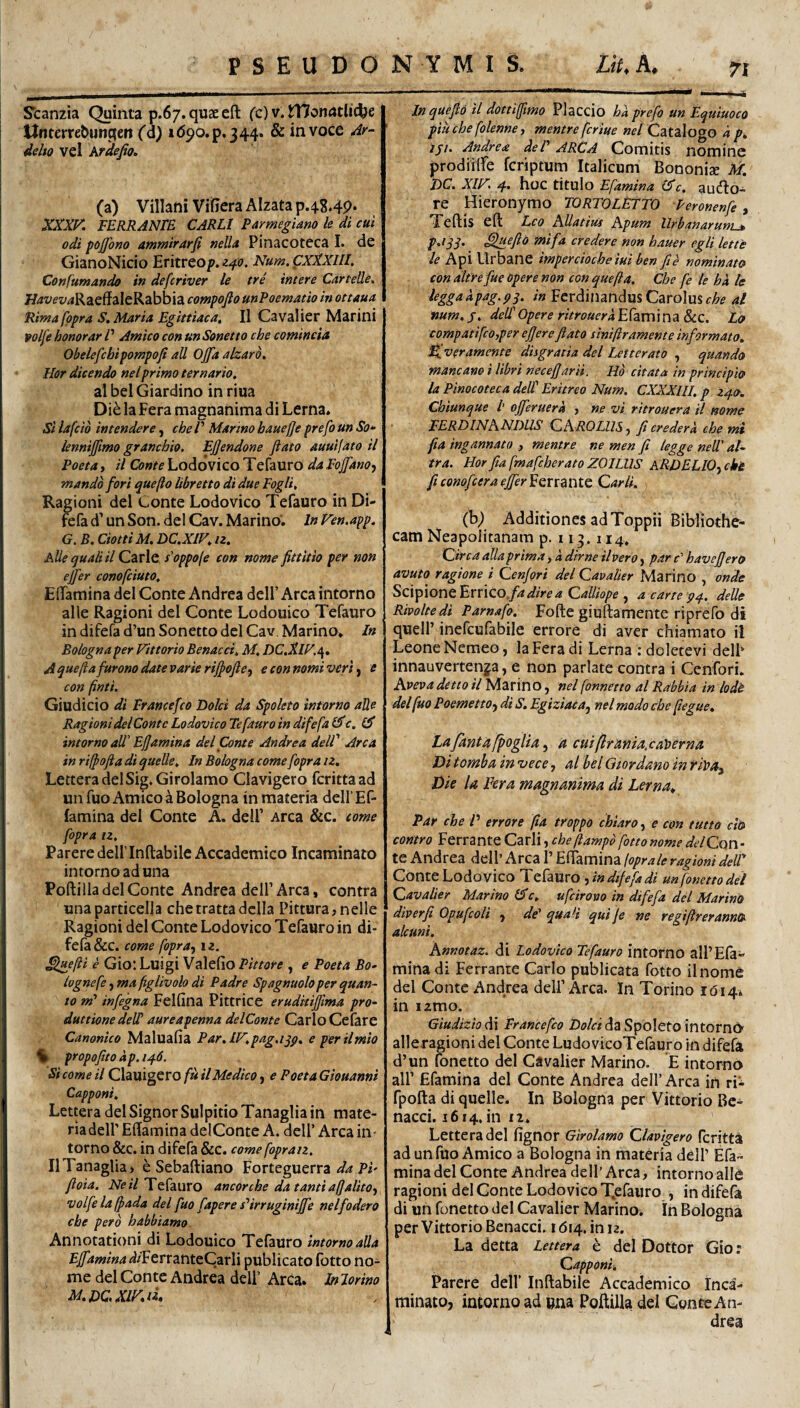 PSEUDONYMIS. Lit. A. 71
Scanzia Quinta p.67. quæ est (c) v. Monatliche
Unterredungen (d) 1690. p. 344. & in voce Ar-
delio vel Ardesio.
(a) Villani Visiera Alzata p.48.49.
XXXV. FERRANTE CARLI Parmegiano le di cui
odi possono ammirarsi nella Pinacoteca I. de
Giano Nicio Eritreo p. 240. Num. CXXXIII.
Consumando in descriver le tré intere Cartelle.
Haveva Raeffale Rabbia composto un Poematio in ottaua
Rima sopra S. Maria Egittiaca. Il Cavalier Marini
volse honorar l' Amico con un Sonetto che comincia
Obeleschi pomposi all Ossa alzarò.
Hor dicendo nel primo ternario.
al bel Giardino in riua
Diè la Fera magnanima di Lerna.
Si lasciò intendere, che l' Marino hauesse preso un So-
lennissimo granchio. Essendone stato auuisato il
Poeta, il Conte Lodovico Tesauro da Fossano,
mandò fori questo libretto di due Fogli.
Ragioni del Conte Lodovico Tesauro in Di-
fesa d' un Son. del Cav. Marino. In Ven. app.
G. B. Ciotti M. DC. XIV. 12.
Alle quali il Carle s'oppose con nome fittitio per non
esser conosciuto.
Essamina del Conte Andrea dell' Arca intorno
alle Ragioni del Conte Lodouico Tesauro
in difesa d'un Sonetto del Cav. Marino. In
Bologna per Vittorio Benacci. M. DC. XIV. 4.
A questa furono date varie risposte, e con nomi veri, e
con finti.
Giudicio di Francesco Dolci da Spoleto intorno alle
Ragioni del Conte Lodovico Tesauro in difesa &c. &
intorno all' Essamina del Conte Andrea dell' Arca
in risposta di quelle. In Bologna come sopra 12.
Lettera del Sig. Girolamo Clavigero scritta ad
un suo Amico à Bologna in materia dell' Es-
samina del Conte A. dell' Arca &c. come
sopra 12.
Parere dell' Instabile Accademico Incaminato
intorno ad una
Postilla del Conte Andrea dell' Arca, contra
una particella che tratta della Pittura, nelle
Ragioni del Conte Lodovico Tesauro in di-
fesa &c. come sopra, 12.
Questi è Gio: Luigi Valesio Pittore, e Poeta Bo-
lognese, ma figlivolo di Padre Spagnuolo per quan-
to m' insegna Felsina Pittrice eruditissima pro-
duttione dell' aurea penna del Conte Carlo Cesare
Canonico Maluasia Par. IV. pag. 139. e per il mio
proposito à p. 146.
Si come il Clauigero fù il Medico, e Poeta Giouanni
Capponi.
Lettera del Signor Sulpitio Tanaglia in mate-
ria dell' Essamina del Conte A. dell' Arca in-
torno &c. in difesa &c. come sopra 12.
Il Tanaglia, è Sebastiano Forteguerra da Pi-
stoia. Ne il Tesauro ancorche da tanti assalito,
volse la spada del suo sapere s'irruginisse nel fodero
che però habbiamo
Annotationi di Lodouico Tesauro intorno alla
Essamina di Ferrante Carli publicato sotto no-
me del Conte Andrea dell' Arca. In Torino
M. DC. XIV. 12.
In questo il dottissimo Placcio hà preso un Equiuoco
più che solenne, mentre scriue nel Catalogo à p.
151. Andreæ del' ARCA Comitis nomine
prodiisse scriptum Italicum Bononiæ M.
DC. XIV. 4. hoc titulo Esamina &c. aucto-
re Hieronymo TORTOLETTO Veronense,
Testis est Leo Allatius Apum Urbanarum
p. 133. Questo mi fa credere non hauer egli lette
le Api Urbane impercioche iui ben si è nominato
con altre sue opere non con questa. Che se le hà le
legga à pag. 93. in Ferdinandus Carolus che al
num. 5. dell' Opere ritrouerà Esamina &c. Lo
compatisco, per essere stato sinistramente informato.
E veramente disgratia del Letterato, quando
mancano i libri necessarii. Hò citata in principio
la Pinocoteca dell' Eritreo Num. CXXXIII. p 240.
Chiunque l' osseruerà, ne vi ritrouera il nome
FERDINANDUS CAROLUS, si crederà che mi
sia ingannato, mentre ne men si legge nell' al-
tra. Hor sia smascherato ZOILUS ARDELIO, che
si conoscera esser Ferrante Carli.
(b) Additiones ad Toppii Bibliothe-
cam Neapolitanam p. 113. 114.
Circa alla prima, à dirne il vero, par c' havessero
avuto ragione i Censori del Cavalier Marino, onde
Scipione Errico fa dire a Calliope, a carte 94. delle
Rivolte di Parnaso. Foste giustamente ripreso di
quell' inescusabile errore di aver chiamato il
Leone Nemeo, la Fera di Lerna: doletevi dell'
innauvertenza, e non parlate contra i Censori.
Aveva detto il Marino, nel sonnetto al Rabbia in lode
del suo Poemetto, di S. Egiziaca, nel modo che siegue.
La santa spoglia, a cui strania, caverna
Di tomba in vece, al bel Giordano in riva,
Die la Fera magnanima di Lerna.
Par che l' errore sia troppo chiaro, e con tutto ciò
contro Ferrante Carli, che stampò sotto nome del Con-
te Andrea dell' Arca l' Essamina sopra le ragioni dell'
Conte Lodovico Tesauro, in difesa di un sonetto del
Cavalier Marino &c. uscirono in difesa del Marino
diversi Opuscoli, de' quali qui se ne registreranno
alcuni.
Annotaz. di Lodovico Tesauro intorno all' Esa-
mina di Ferrante Carlo publicata sotto il nome
del Conte Andrea dell' Arca. In Torino 1614.
in 12mo.
Giudizio di Francesco Dolci da Spoleto intorno
alle ragioni del Conte Ludovico Tesauro in difesa
d' un sonetto del Cavalier Marino. E intorno
all' Esamina del Conte Andrea dell' Arca in ri-
sposta di quelle. In Bologna per Vittorio Be-
nacci. 1614. in 12.
Lettera del signor Girolamo Clavigero scritta
ad un suo Amico a Bologna in materia dell' Esa-
mina del Conte Andrea dell' Arca, intorno alle
ragioni del Conte Lodovico Tesauro, in difesa
di un sonetto del Cavalier Marino. In Bologna
per Vittorio Benacci. 1614. in 12.
La detta Lettera è del Dottor Gio:
Capponi.
Parere dell' Instabile Accademico Inca-
minato, intorno ad una Postilla del Conte An-
drea